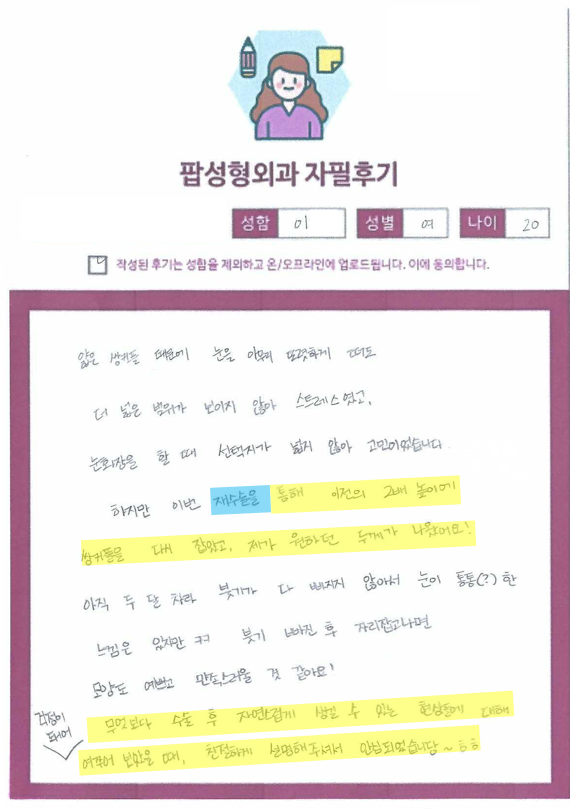 팝성형외과 자필후기
성함 이 성별 여 나이 20
작성된 후기는 성함을 제외하고 온/오프라인에 업로드됩니다. 이에 동의합니다.
얇은 쌍커플 때문에 눈을 아무리 또렷하게 떠도
더 넓은 범위가 보이지 않아 스트레스였고,
눈화장을 할 때 선택지가 넓지 않아 고민이었습니다.
하지만 이번 재수술을 통해 이전의 2배 높이에
쌍커풀을 다시 잡았고, 제가 원하던 두께가 나왔어요!
아직 두 달 차라 붓기가 다 빠지지 않아서 눈이 통통(?)한
느낌은 있지만 ㅋㅋ 붓기 빠진 후 자리잡고나면
모양도 예쁘고 만족스러울 것 같아요!
무엇보다 수술 후 자연스럽게 생길 수 있는 현상들에 대해
걱정이 되어
여쭈어 보았을 때, 친절하게 설명해주셔서 안심되었습니당~ㅎㅎ